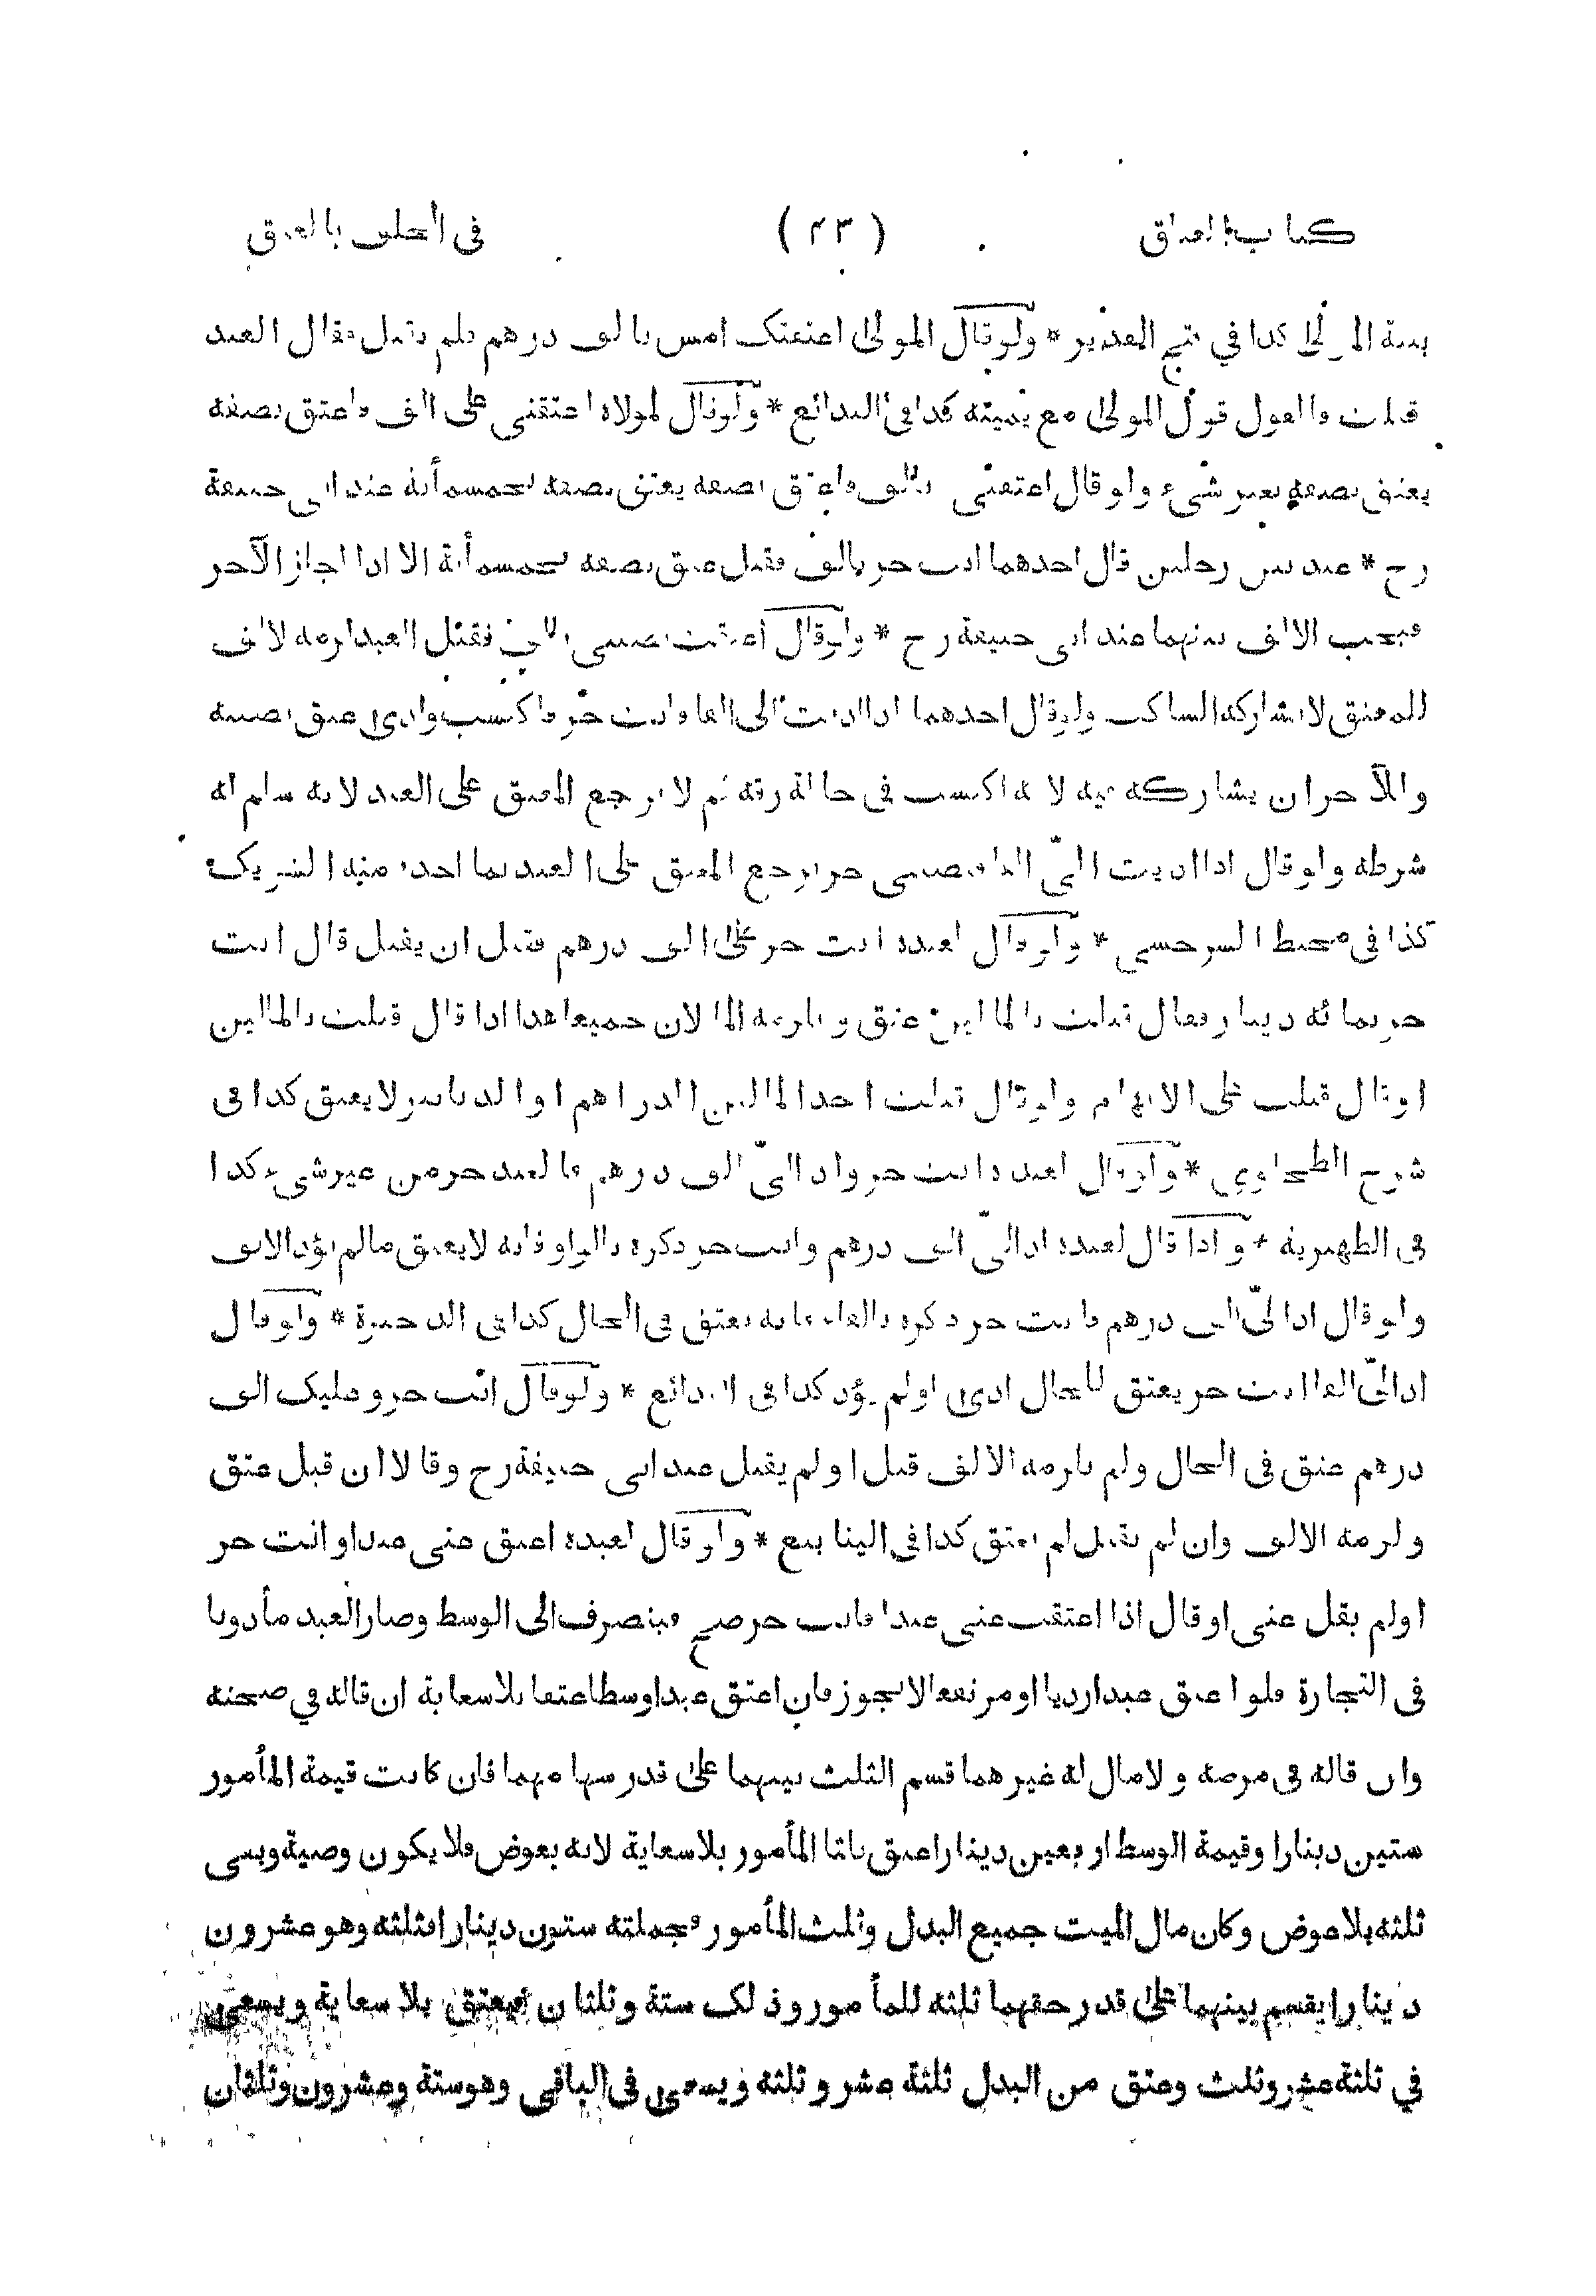 كتاب العتاق (٤٣) في الحلف بالعتق
بينة المولى كذا في فتح القدير * ولو قال المولى اعتقتك امس بالف درهم فلم تقبل فقال العبد
قبلت فالقول قول المولى مع يمينه كذا في البدائع * ولو قال لمولاه اعتقني على الف فاعتق نصفه
يعتق نصفه بغير شيء ولو قال اعتقني بالف فاعتق نصفه يعتق نصفه بخمسمأئة عند ابي حنيفة
رح * عبد بين رجلين قال احدهما انت حر بالف فقبل عتق نصفه بخمسمأئة الا اذا اجاز الآخر
فيجب الالف بينهما عند ابي حنيفة رح * ولو قال أعتقت نصيبي بالف فقبل العبد لزمه الالف
للمعتق لا يشاركه الساكت ولو قال احدهما اذا اديت الى الفا فانت حر فاكتسب وادى عتق نصيبه
والآخر ان يشاركه فيه لانه اكتسب في حالة رقه ثم لا يرجع المعتق على العبد لانه سلم له
شرطه ولو قال اذا اديت اليّ الفا فنصيبي حر يرجع المعتق على العبد بما اخذ منه الشريك
كذا في محيط السرخسي * ولو قال لعبده انت حر على الف درهم فقبل ان يقبل قال انت
حر بمائة دينار فقال قبلت بالمالين عتق ويلزمه المالان جميعا هذا اذا قال قبلت بالمالين
او قال قبلت على الابهام ولو قال قبلت احد المالين الدراهم او الدنانير لا يعتق كذا في
شرح الطحاوي * ولو قال لعبده انت حر واد اليّ الف درهم فالعبد حر من غير شيء كذا
في الظهيرية * واذا قال لعبده اد اليّ الف درهم وانت حر ذكره بالواو فانه لا يعتق مالم يؤد الالف
ولو قال اد اليّ الف درهم فانت حر ذكره بالفاء فانه يعتق في الحال كذا في الذخيرة * ولو قال
اد اليّ الفا انت حر يعتق للحال ادى او لم يؤد كذا في البدائع * ولو قال انت حر وعليك الف
درهم عتق في الحال ولم يلزمه الالف قبل او لم يقبل عند ابي حنيفة رح وقالا ان قبل عتق
ولزمه الالف وان لم يقبل لم يعتق كذا في الينابيع * ولو قال لعبده اعتق عني عبدا وانت حر
اولم يقل عني او قال اذا اعتقت عني عبدا فانت حر صح فينصرف الى الوسط وصار العبد مأذونا
في التجارة فلو اعتق عبدا رديا او مرتفعا لا يجوز فان اعتق عبدا وسطا عتقا بلا سعاية ان قاله في صحته
وان قاله في مرضه ولا مال له غيرهما قسم الثلث بينهما على قدر سهامهما فان كانت قيمة المأمور
ستين دينارا وقيمة الوسط اربعين دينارا عتق ثلثا المأمور بلا سعاية لانه بعوض فلا يكون وصية وبقى
ثلثه بلا عوض وكان مال الميت جميع البدل وثلث المأمور فجملته ستون دينارا فثلثه وهو عشرون
دينارا يقسم بينهما على قدر حقهما ثلثه للمأمور وذلك ستة وثلثان فيعتق بلا سعاية ويسعى
في ثلثة عشر وثلث وعتق من البدل ثلثة عشر وثلثه ويسعى في الباقي وهو ستة وعشرون وثلثان